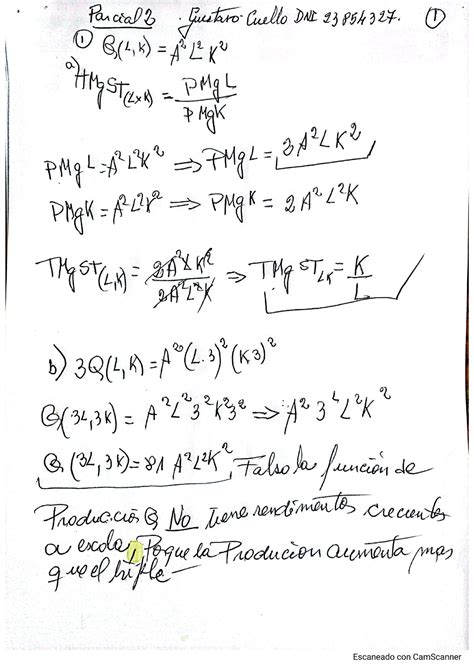 Parcial 2 . Gustavo Cuello DNI 23854327. ①
① Q(L,K) = A²L²K²
a) TMgST(LxK) = PMgL / PMgK
PMgL = A²L²K² ⟹ PMgL = 3A²LK²
PMgK = A²L²K² ⟹ PMgK = 2A²L²K
TMgST(L,K) = 2A²LK² / 2A²L²K ⟹ TMgSTLK = K / L
b) 3Q(L,K) = A²(L.3)²(K3)²
Q(3L,3K) = A²L²3²K²3² ⟹ A²3⁴L²K²
Q(3L,3K) = 81 A²L²K², Falso la función de
Producción Q No tiene rendimentos crecientes
a escola, Poque la Producion aumenta mas
que el triple
Escaneado con CamScanner